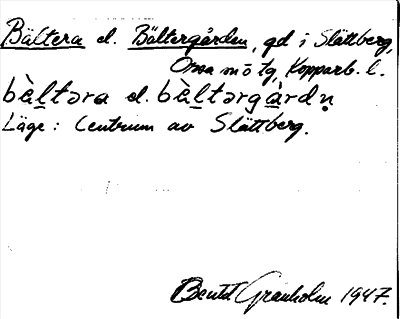 Bältera el. Bältergården, gd i Slättberg,
Orsa sn o tg, Kopparb. l.
bàltəra el. bàltərgàrdn̥
Läge: Centrum av Slättberg.
Bentil Granholm 1947.